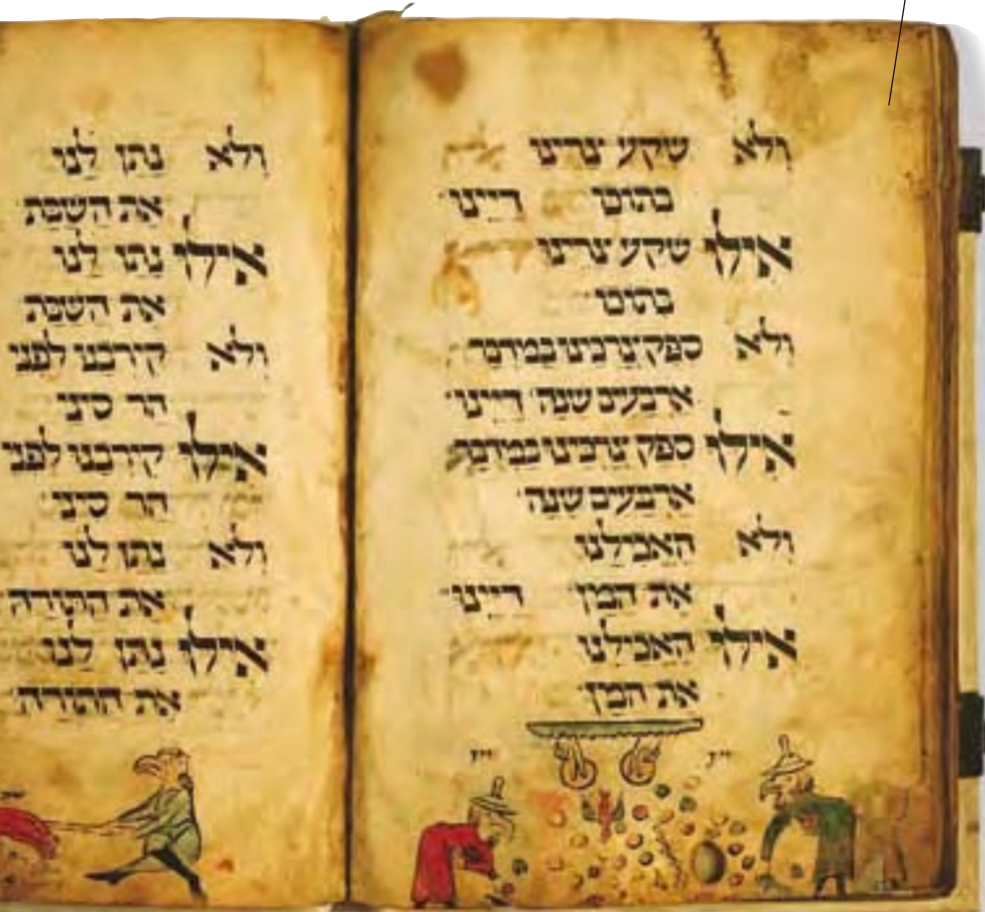 ולא שקע צרינו
בתוכו דיינו
אילו שקע צרינו
בתוכו
ולא ספק צרכינו במדבר
ארבעים שנה דיינו
אילו ספק צרכינו במדבר
ארבעים שנה
ולא האכילנו
את המן דיינו
אילו האכילנו
את המן
ולא נתן לנו
את השבת
אילו נתן לנו
את השבת
ולא קירבנו לפני
הר סיני
אילו קירבנו לפני
הר סיני
ולא נתן לנו
את התורה
אילו נתן לנו
את התורה